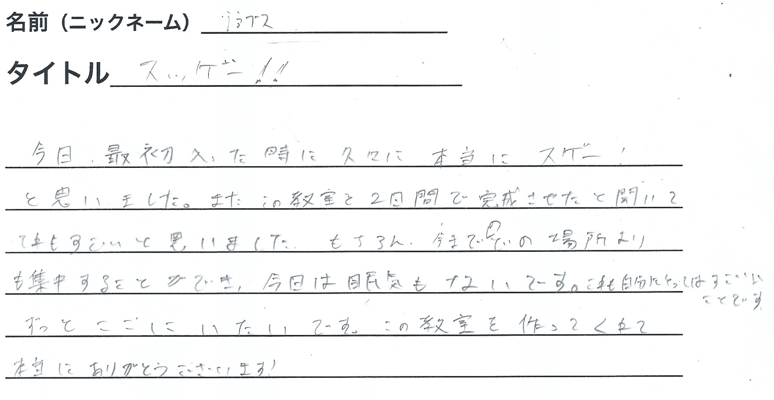 名前（ニックネーム）
タイトル スッゲー!!
今日、最初入った時に久々に本当にスゲー!
と思いました。またこの教室を2日間で完成させたと聞いて
とてもすごいと思いました。もちろん、今までの場所より
も集中することができ、今日は眠気もないです。これも自分にとってはすごい
ことです
ずっとここにいたいです。この教室を作ってくれて
本当にありがとうございます!